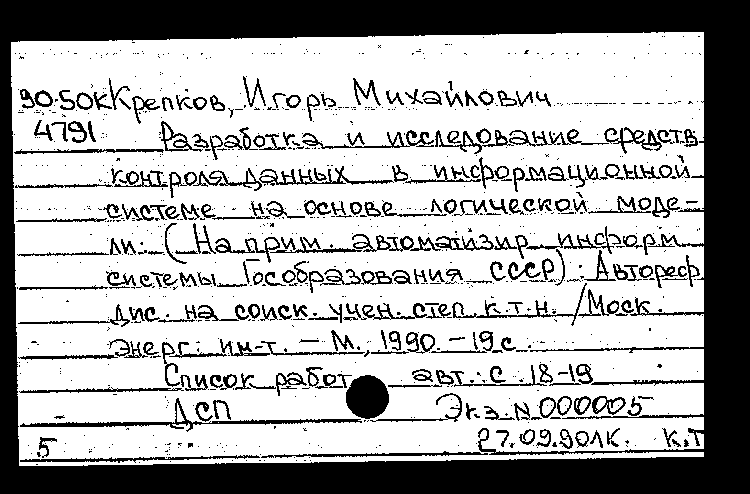 90-50К Крепков, Игорь Михайлович
4791 Разработка и исследование средств
контроля данных в информационной
системе на основе логической моде-
ли: (На прим. автоматизир. информ.
системы Гособразования СССР) : Автореф.
дис. на соиск. учен. степ. к.т.н. /Моск.
энерг. ин-т. - М., 1990. - 19 с.
Список работ авт.: с. 18-19
ДСП Экз. N 000005
5 27.09.90 ЛК. К.Т